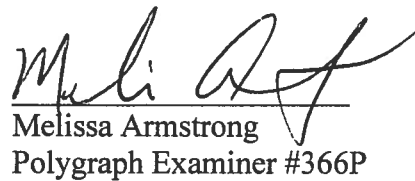 Meli A
Melissa Armstrong
Polygraph Examiner #366P